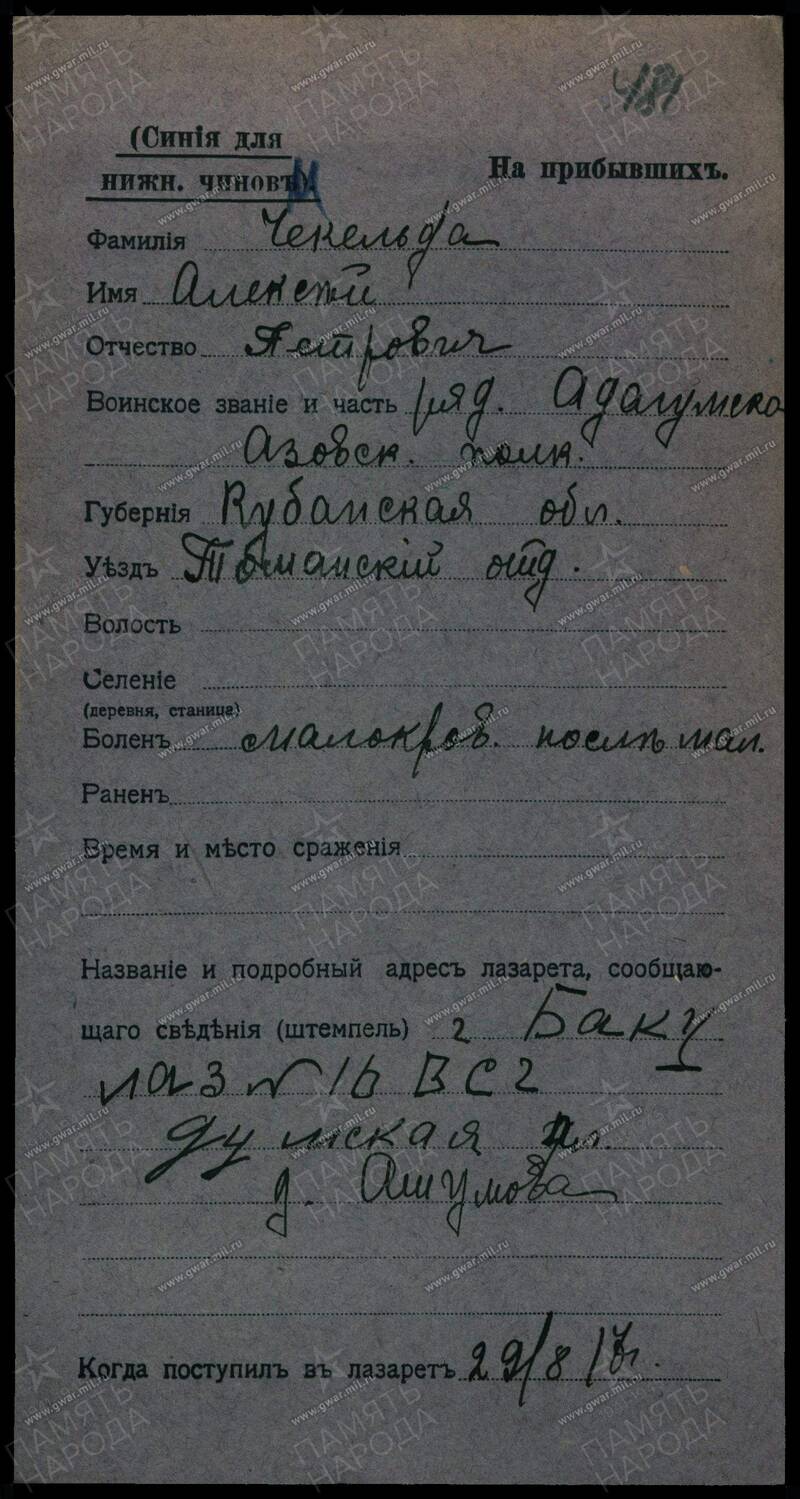 481
(Синія для
нижн. чиновъ)
На прибывшихъ.
Фамилія Чекельда
Имя Алексѣй
Отчество Петрович
Воинское званіе и часть ряд. Адагумско
Азовск. полк.
Губернія Кубанская обл.
Уѣздъ Томанскій отд.
Волость
Селеніе
(деревня, станица)
Боленъ малокров. послѣ мал.
Раненъ
Время и мѣсто сраженія
Названіе и подробный адресъ лазарета, сообщаю-
щаго свѣдѣнія (штемпель) г Баку
лаз № 16 ВСГ
Думская пл.
д. Ашумова
Когда поступилъ въ лазаретъ 29/8
www.gwar.mil.ru
ПАМЯТЬ НАРОДА